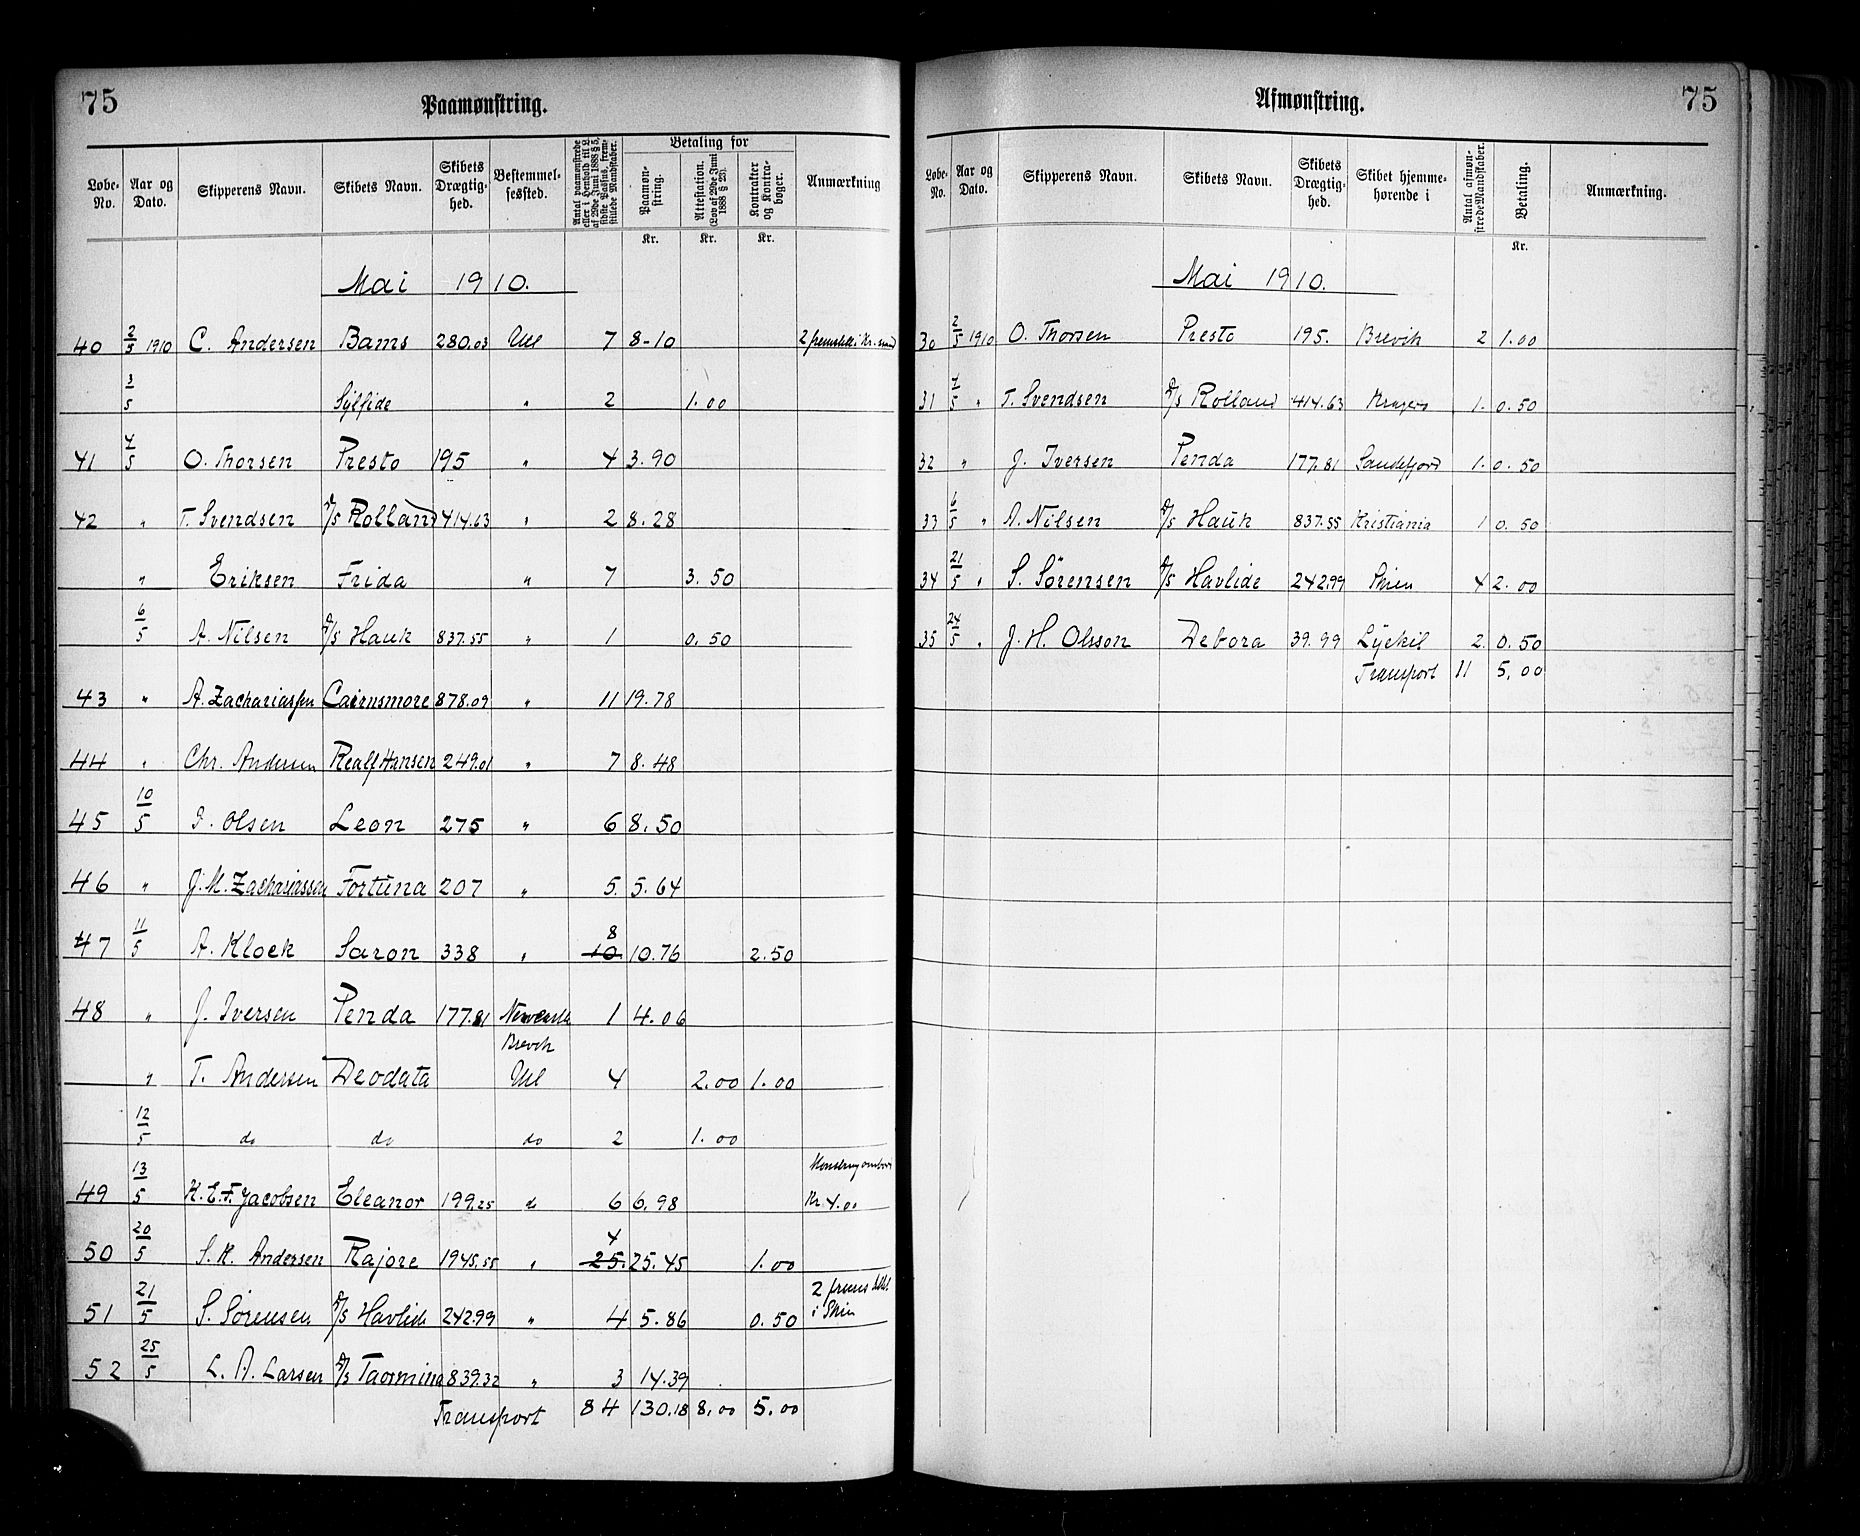 75
Paamønstring.
Løbe-No.
Aar og Dato.
Skipperens Navn.
Skibets Navn.
Skibets Drægtighed.
Bestemmelsessted.
Antal paamønstrede eller i Henhold til L. af 29de Juni 1888 § 5, sidste Passus, fremstillede Mandskaber.
Betaling for
Paamønstring.
Attestation. (Lov af 29de Juni 1888 § 23).
Kontrakter og Kontrabøger.
Anmærkning
Kr. Kr. Kr.
Mai 1910.
40 2/5 1910 C. Andersen Bams 280.03 Udl 7 8-10 2 fremstillet i Kr.sund
3/5 Sylfide " 2 1.00
41 4/5 O. Thorsen Presto 195 " 4 3.90
42 " T. Svendsen D/S Rolland 414.63 " 2 8.28
" Eriksen Frida " 7 3.50
6/5 A. Nilsen D/S Hauk 837.55 " 1 0.50
43 " A. Zachariassen Cairnsmore 878.09 " 11 19.78
44 " Chr. Andersen Realf Hansen 249.01 " 7 8.48
45 10/5 I. Olsen Leon 275 " 6 8.50
46 " J. M. Zachariassen Fortuna 207 " 5. 5.64
8
47 11/5 A. Klock Saron 338 " 10. 10.76 2.50
48 " J. Iversen Penda 177.81 Newcastle 1 4.06
Brevik
" T. Andersen Deodata Udl 4 2.00 1.00
12/5 do do do 2 1.00
49 13/5 K. E. F. Jacobsen Eleanor 199.25 do 6 6.98 Kr 4.00
4
50 20/5 S. K. Andersen Rajore 1945.55 " 25. 25.45 1.00
51 21/5 S. Sørensen D/S Havlide 242.99 " 4 5.86 0.50 2 fremstillet i Skien
52 25/5 L. A. Larsen D/S Taormina 839.32 " 3 14.39
Transport 84 130.18 8.00 5.00
Afmønstring.
75
Løbe-No.
Aar og Dato.
Skipperens Navn.
Skibets Navn.
Skibets Drægtighed.
Skibet hjemmehørende i
Antal afmønstrede Mandskaber.
Betaling.
Anmærkning.
Kr.
Mai 1910.
30 2/5 1910 O. Thorsen Presto 195. Brevik 2 1.00
31 4/5 " T. Svendsen D/S Rolland 414.63 Kragerø 1. 0.50
32 " J. Iversen Penda 177.81 Sandefjord 1. 0.50
33 6/5 " A. Nilsen D/S Hauk 837.55 Kristiania 1 0.50
34 21/5 " S. Sörensen D/S Havlide 242.99 Skien 4 2.00
35 24/5 " J. H. Olsson Debora 39.99 Lysekil 2. 0.50
Transport 11 5.00